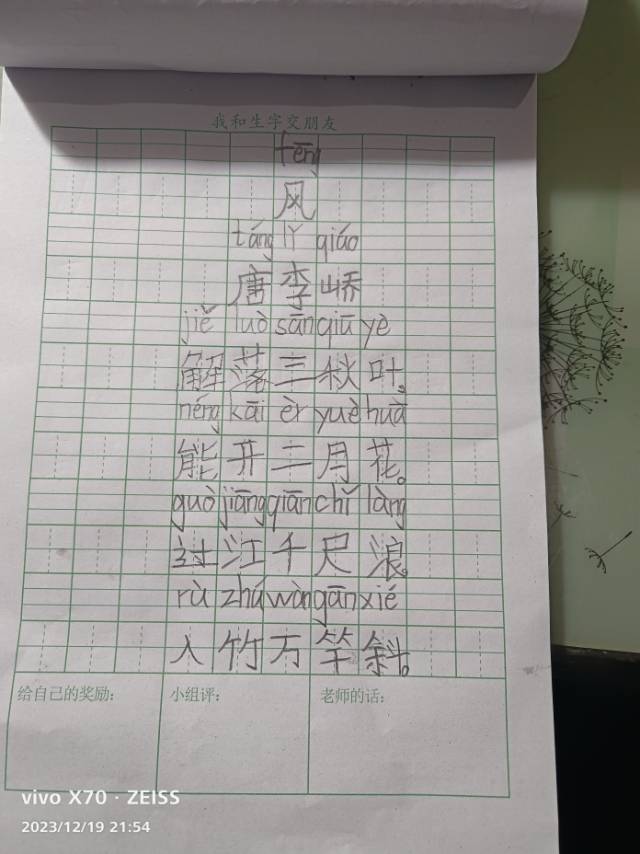 我和生字交朋友
fēng
风
táng lǐ qiáo
唐李峤
jiě luò sān qiū yè
解落三秋叶。
néng kāi èr yuè huā
能开二月花。
guò jiāng qiān chǐ làng
过江千尺浪。
rù zhú wàn gān xié
入竹万竿斜。
给自己的奖励: 小组评: 老师的话:
vivo X70 · ZEISS
2023/12/19 21:54